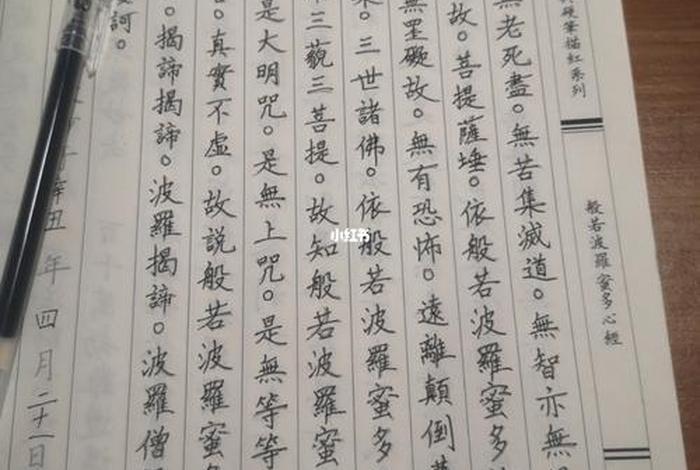 硬筆描紅系列
般若波羅蜜多心經
無老死盡。無苦集滅道。無智亦無
故。菩提薩埵。依般若波羅蜜多
無罣礙故。無有恐怖。遠離顛倒
三世諸佛。依般若波羅蜜多
三藐三菩提。故知般若波羅蜜
是大明咒。是無上咒。是無等等
真實不虛。故說般若波羅蜜
揭諦揭諦。波羅揭諦。波羅僧
訶。
辛丑年四月二十一日
小红书